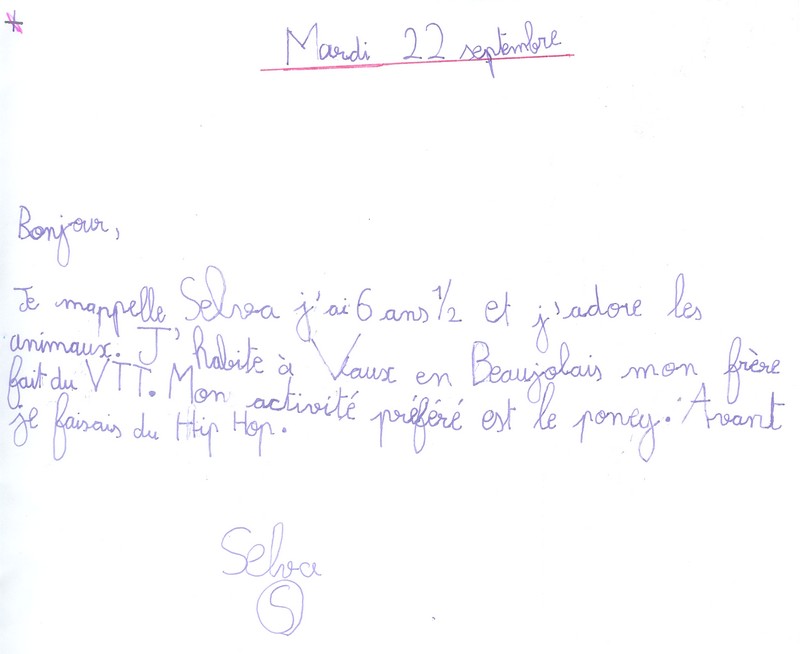 Mardi 22 septembre
Bonjour,
Je mappelle Selva j'ai 6 ans 1/2 et j'adore les
animaux. J'habite à Vaux en Beaujolais mon frère
fait du VTT. Mon activité préféré est le poney. Avant
je faisais du Hip Hop.
Selva
S